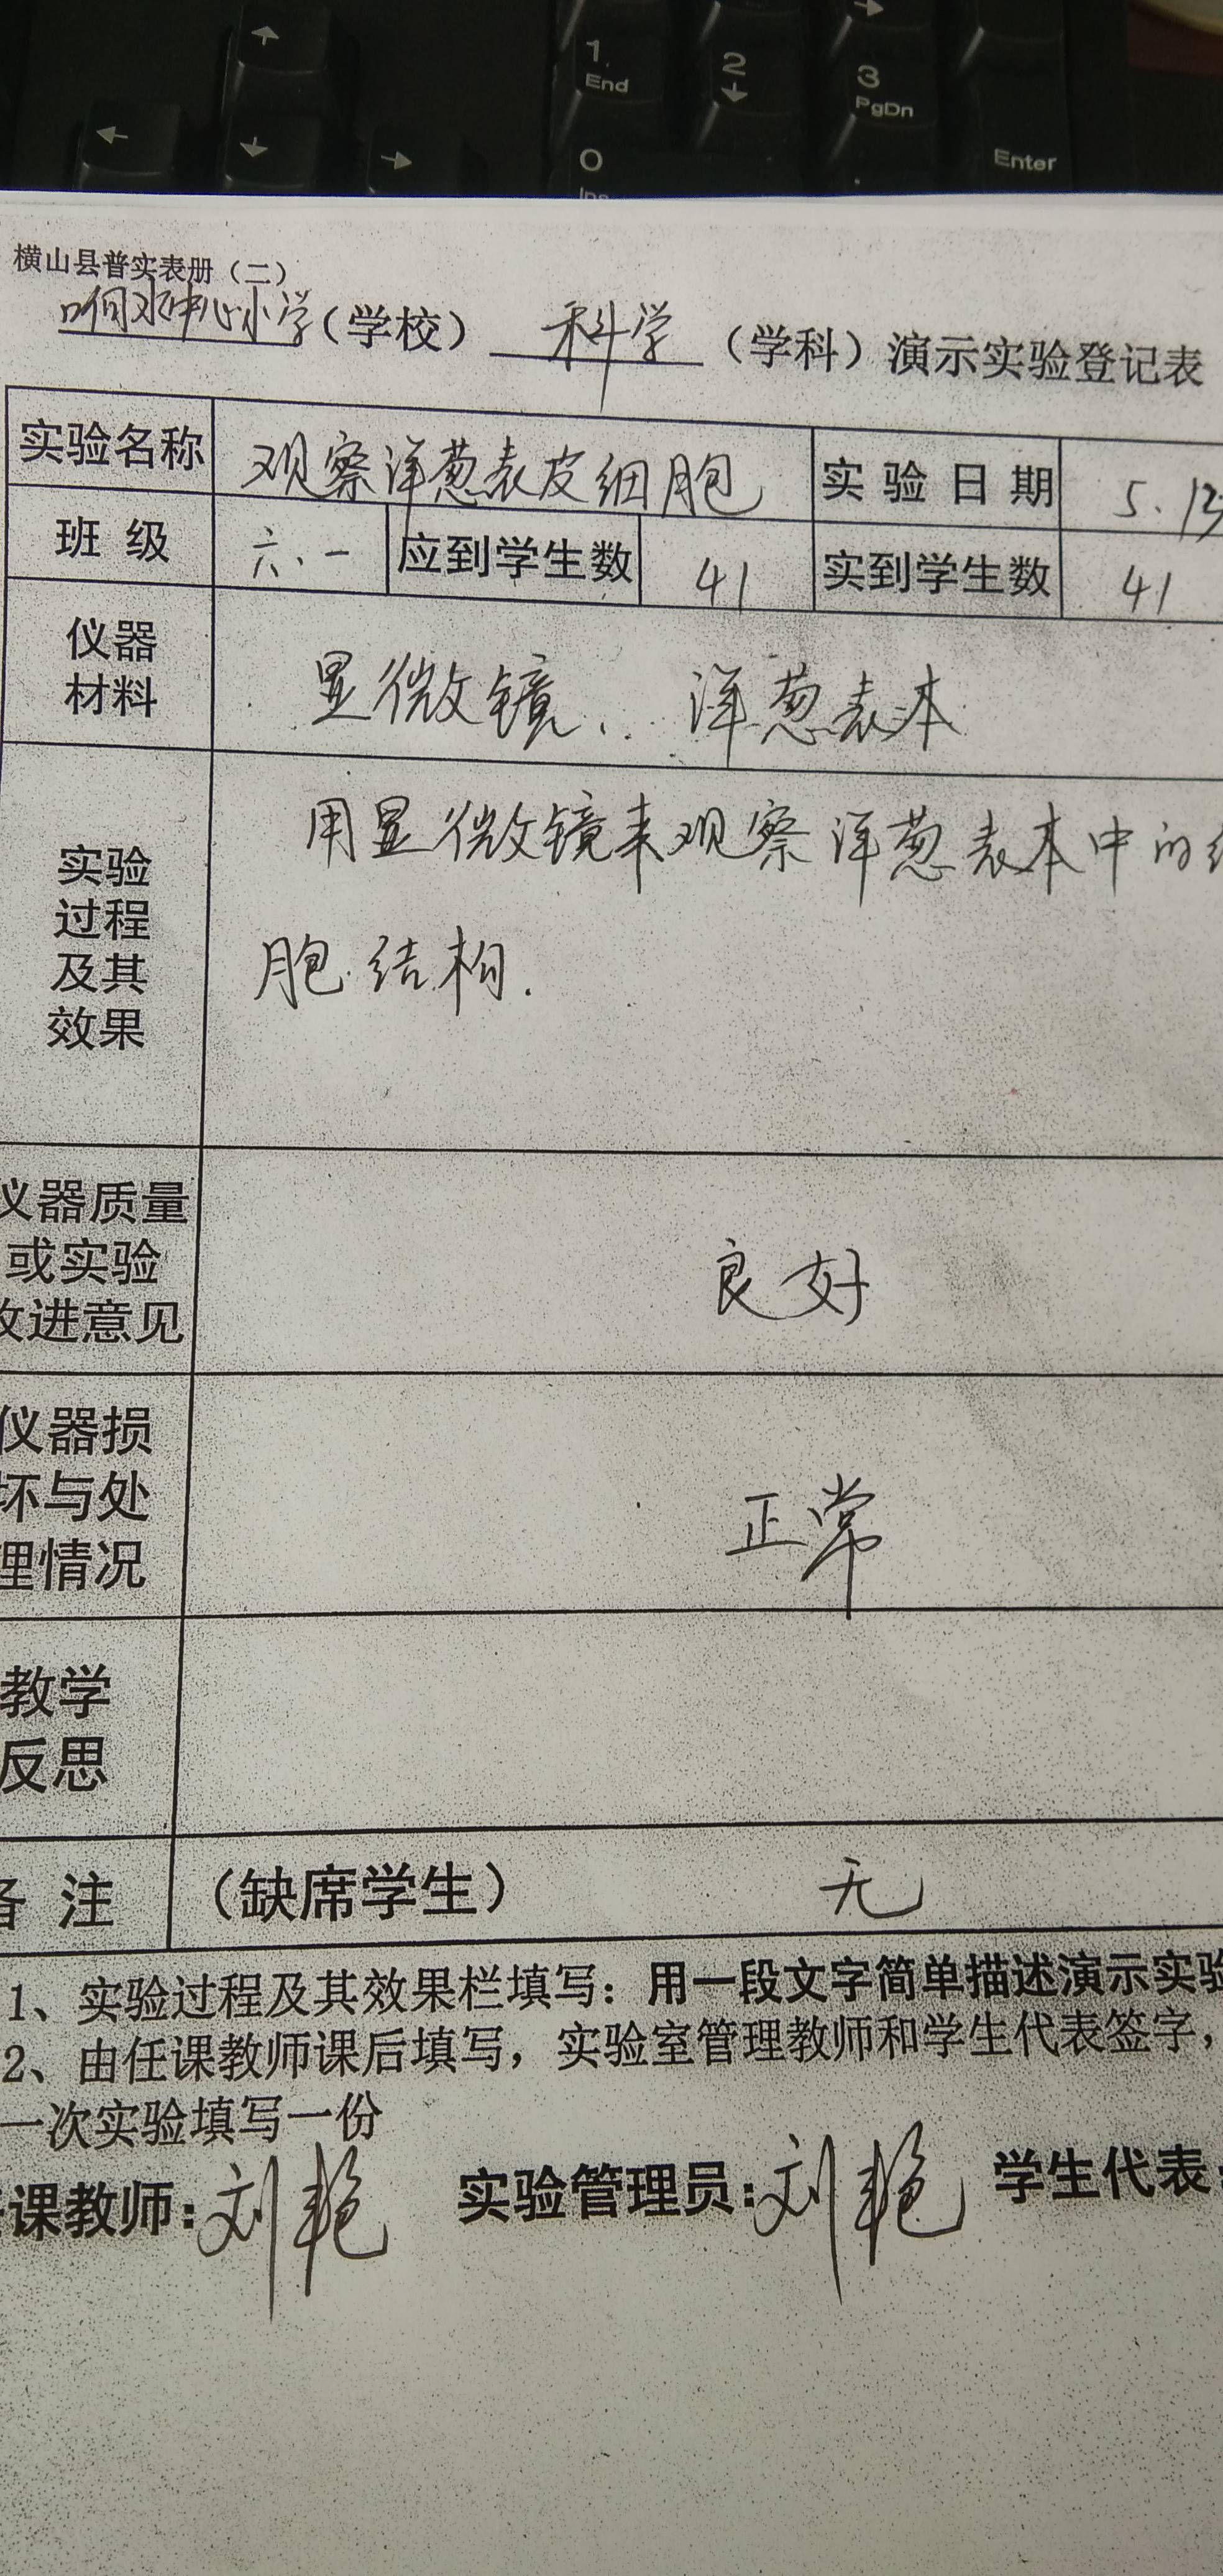 1 End
2
3 PgDn
0
Enter
横山县普实表册（二）
响水中心小学（学校） 科学 （学科）演示实验登记表
实验名称 观察洋葱表皮细胞 实验日期 5.13
班级 六.一 应到学生数 41 实到学生数 41
仪器
材料
显微镜、洋葱表本
实验
过程
及其
效果
用显微镜来观察洋葱表本中的
胞结构.
仪器质量
或实验
改进意见
良好
仪器损
坏与处
理情况
正常
教学
反思
备注 （缺席学生） 无
1、实验过程及其效果栏填写：用一段文字简单描述演示实验
2、由任课教师课后填写，实验室管理教师和学生代表签字，
一次实验填写一份
课教师：刘艳 实验管理员：刘艳 学生代表：